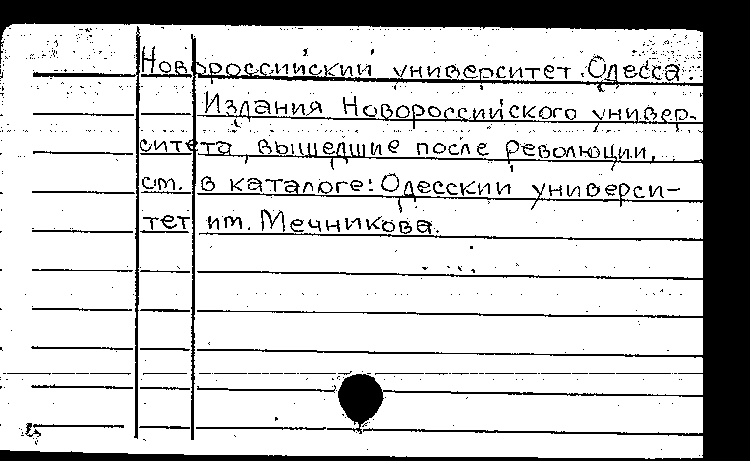 Новороссийский университет. Одесса.
Издания Новороссийского универ-
ситета, вышедшие после революции,
см. в каталоге: Одесский универси-
тет им. Мечникова.